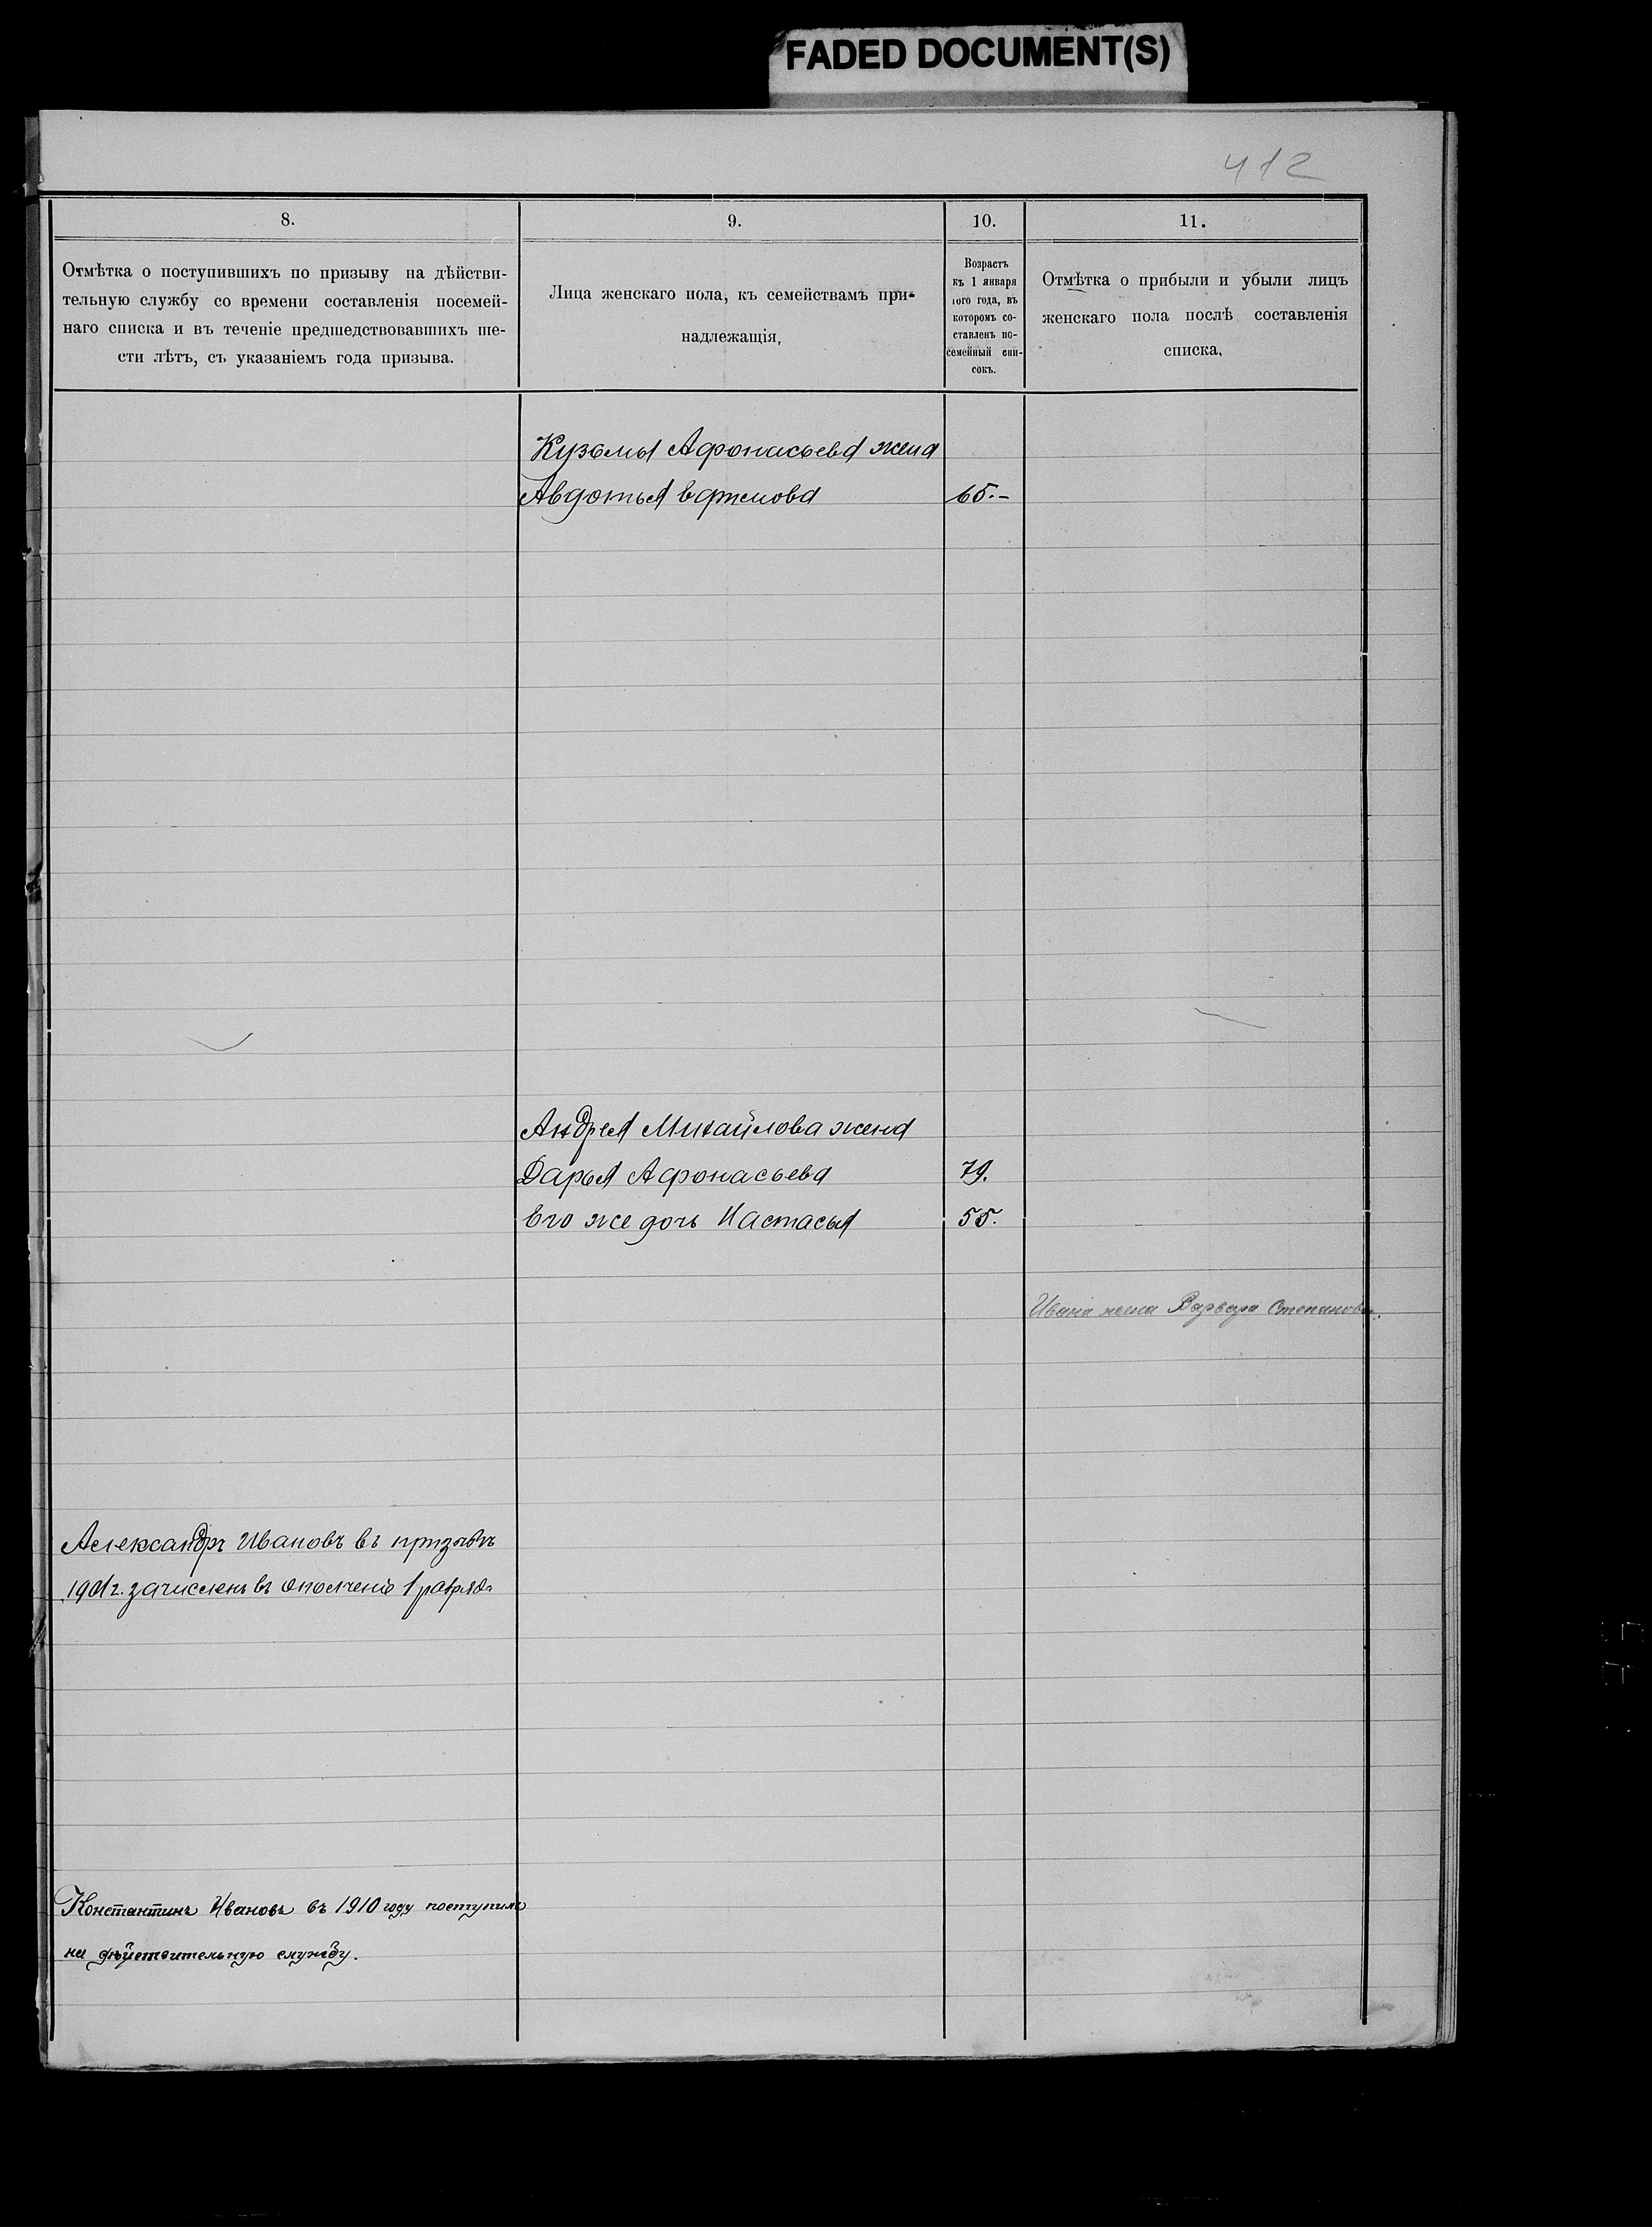 FADED DOCUMENT(S)
412
8.
9.
10.
11.
Отмѣтка о поступившихъ по призыву на дѣйстви-
тельную службу со времени составленія посемей-
наго списка и въ теченіе предшедствовавшихъ ше-
сти лѣтъ, съ указаніемъ года призыва.
Лица женскаго пола, къ семействамъ при-
надлежащія,
Возрастъ
къ 1 января
того года, въ
которомъ со-
ставленъ по-
семейный спи-
сокъ.
Отмѣтка о прибыли и убыли лицъ
женскаго пола послѣ составленія
списка,
Кузьмы Афонасьева жена
Авдотья 65.-
Андрея Михайлова жена
Дарья Афонасьева 79.
Его же дочь Настасья 55.
Ивана жена Варвара Степанова.
Александръ Ивановъ въ призывъ
1901 г. зачисленъ въ ополченіе 1 разряда
Константинъ Ивановъ въ 1910 году поступилъ
на дѣйствительную службу.